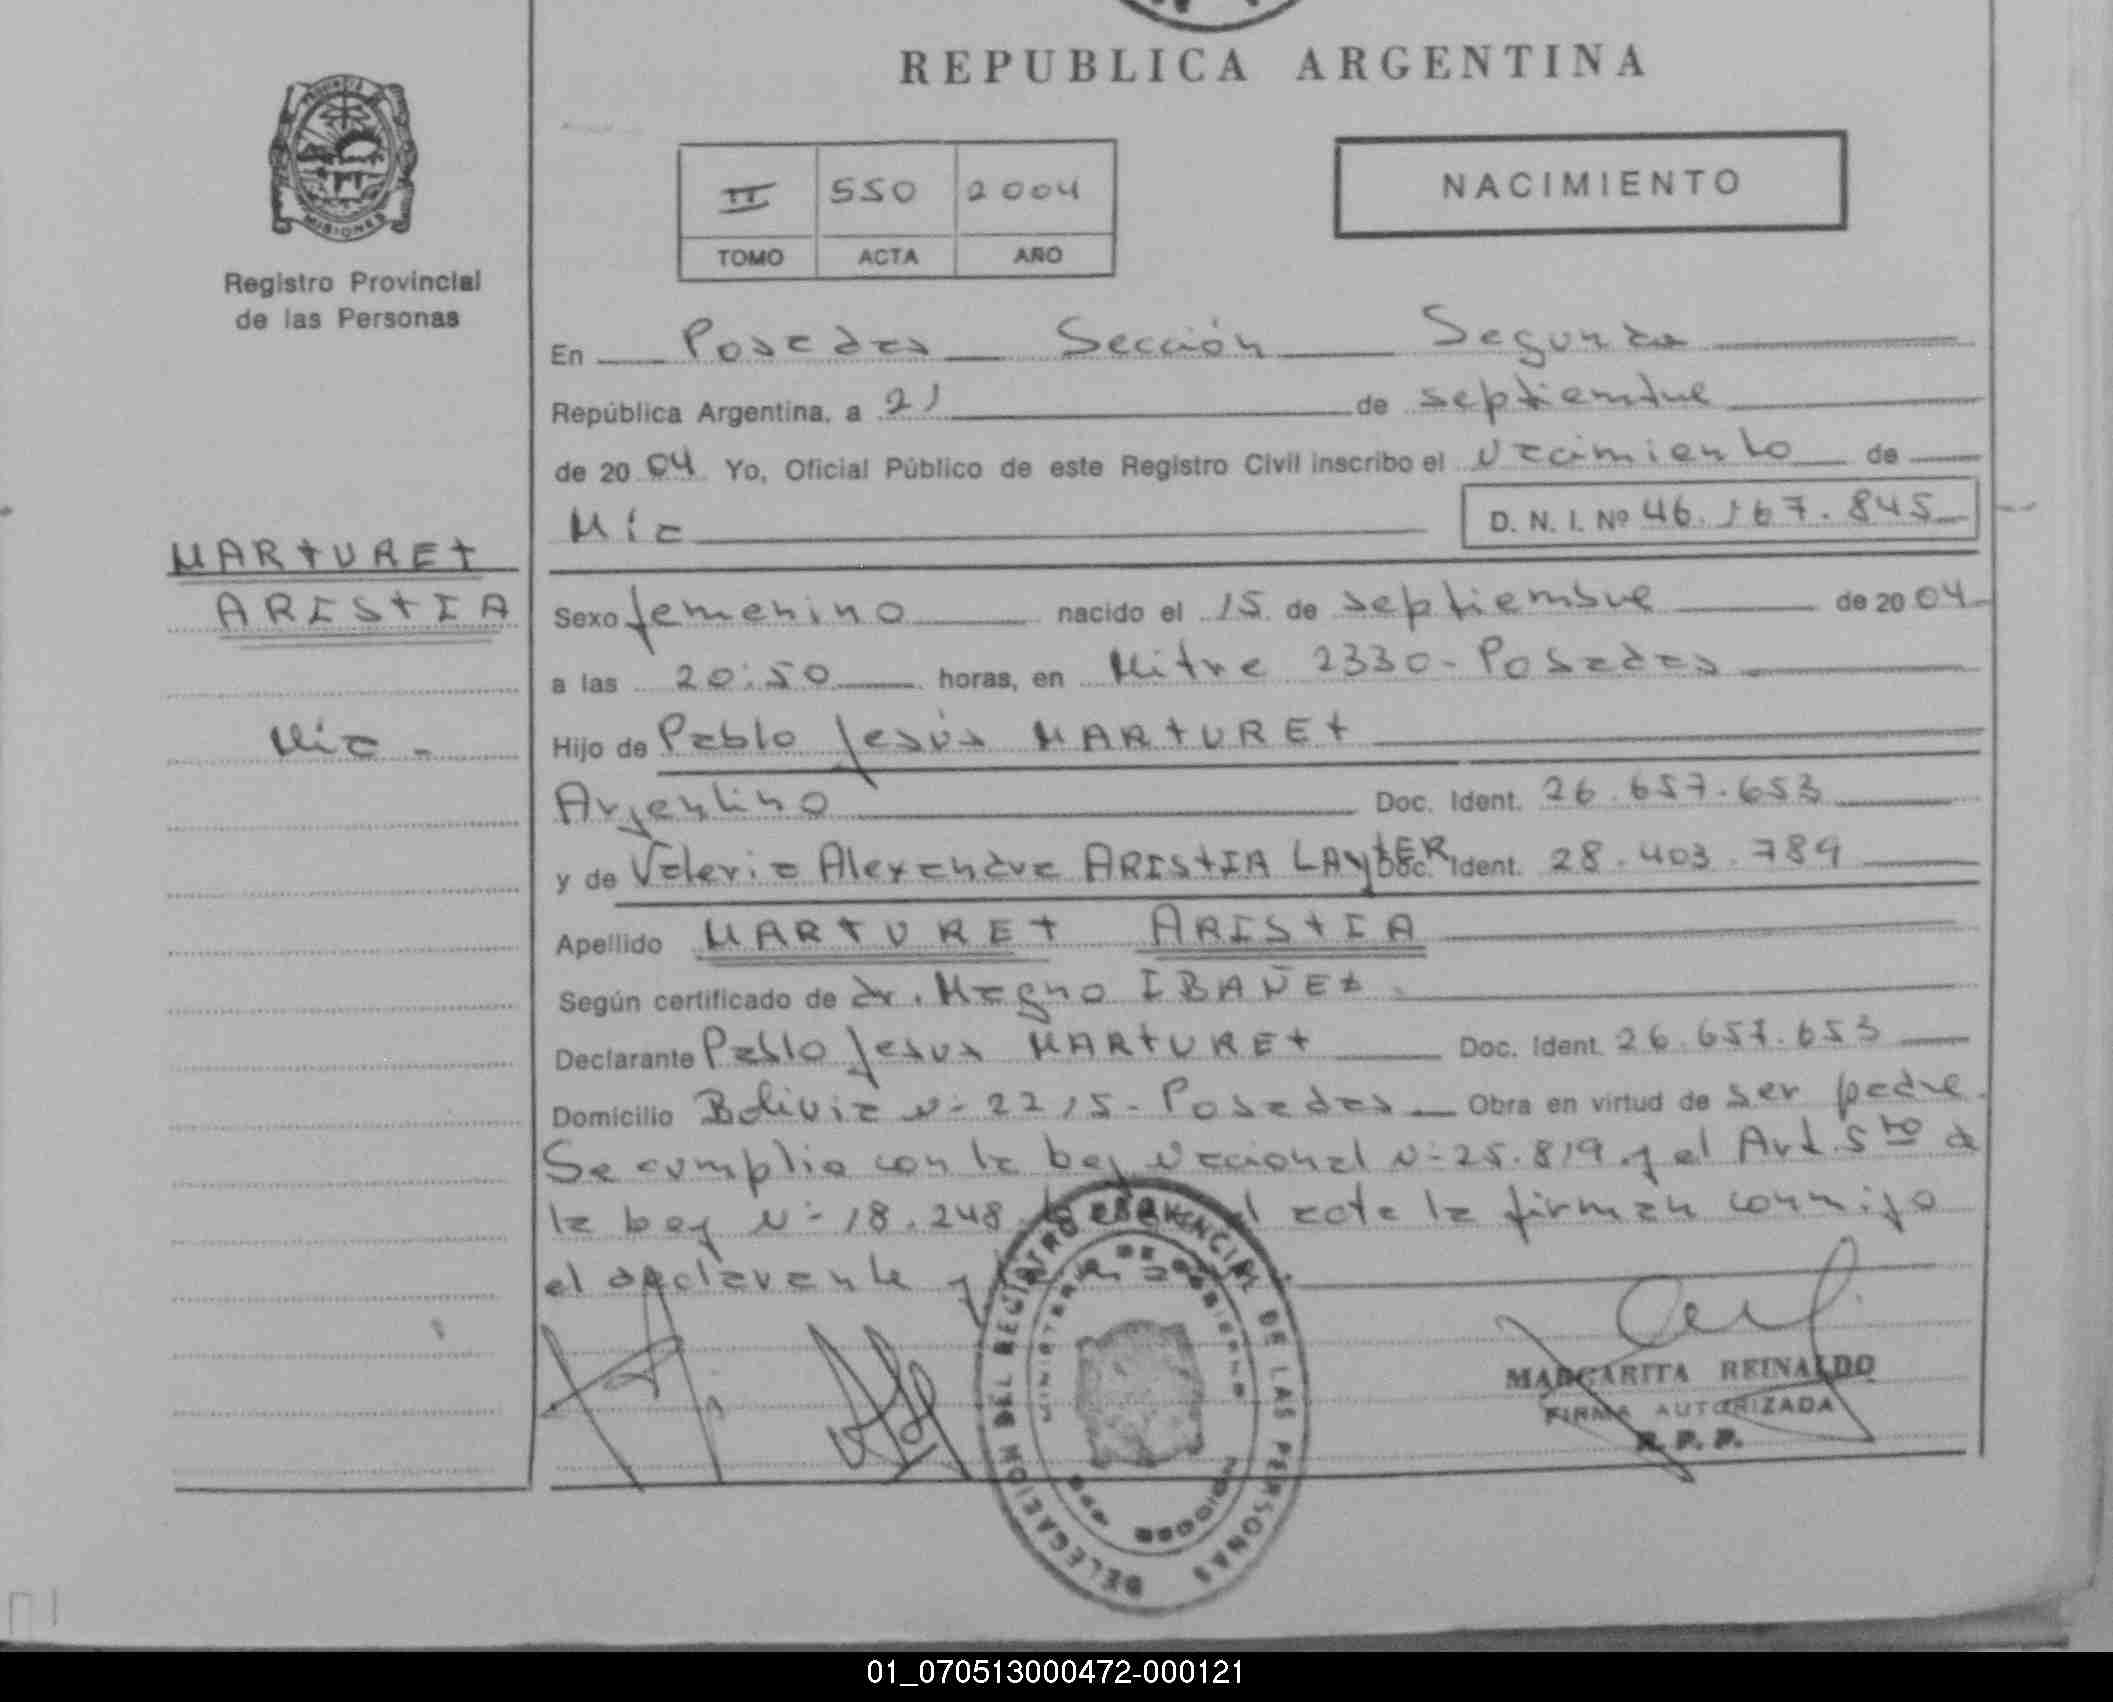 REPUBLICA ARGENTINA
PROVINCIA DE
MISIONES
Registro Provincial
de las Personas
II 550 2004
TOMO ACTA AÑO
NACIMIENTO
En Posadas Sección Segunda
República Argentina, a 21 de septiembre
de 20 04 Yo, Oficial Público de este Registro Civil inscribo el Nacimiento de
Mía D. N. I. Nº 46.167.845
MARTURET
ARISTIA
Mía -
Sexo femenino nacido el 15 de septiembre de 20 04
a las 20:50 horas, en Mitre 2330 - Posadas
Hijo de Pablo Jesús MARTURET
Argentino Doc. Ident. 26.657.653
y de Valeria Alexandra ARISTIA LAYTER Doc. Ident. 28.403.789
Apellido MARTURET ARISTIA
Según certificado de dr. Magno IBAÑEZ
Declarante Pablo Jesus MARTURET Doc. Ident. 26.657.653
Domicilio Bolivia Nº 2215 - Posadas Obra en virtud de ser padre.
Se cumplio con la Ley Nacional Nº 25.819 y el Art. 5to de
la Ley Nº 18.248. acta la firman conmigo
el declarante y
DELEGACION DEL REGISTRO PROVINCIAL DE LAS PERSONAS
MINISTERIO DE GOBIERNO
POSADAS
MARGARITA REINALDO
FIRMA AUTORIZADA
R. P. P.
01_070513000472-000121